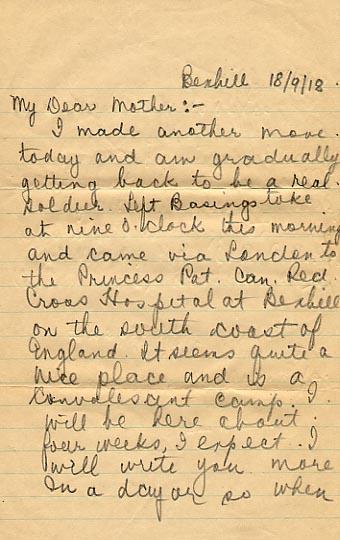 Bexhill 18/9/18.
My Dear Mother:-
I made another move
today and am gradually
getting back to be a real
soldier. Left Basingstoke
at nine O.clock this morning
and came via London to
the Princess Pat. Can. Red.
Cross Hospital at Bexhill
on the south coast of
England. It seems quite a
nice place and is a
Convalescent camp. I
will be here about
four weeks, I expect. I
will write you more
in a day or so when